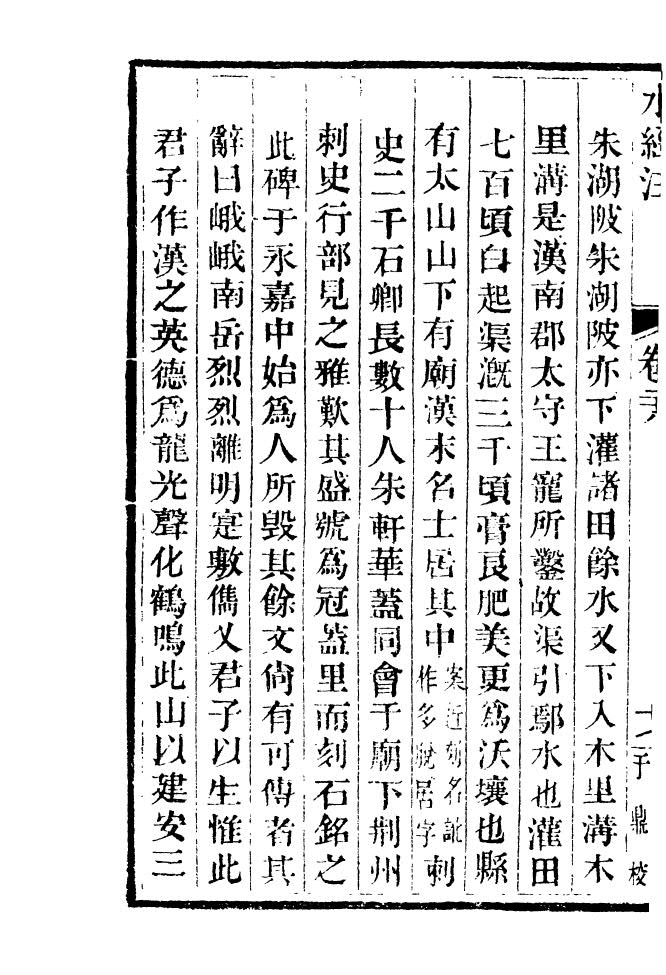 水經注 卷二十八
朱湖陂朱湖陂亦下灌諸田餘水又下入木里溝木
里溝是漢南郡太守王寵所鑿故渠引鄢水也灌田
七百頃白起渠漑三千頃膏良肥美更爲沃壤也縣
有太山山下有廟漢末名士居其中案近刻名訛作多脫居字刺
史二千石卿長數十人朱軒華蓋同會于廟下荆州
刺史行部見之雅歎其盛號爲冠蓋里而刻石銘之
此碑于永嘉中始爲人所毁其餘文尙有可傳者其
辭曰峨峨南岳烈烈離明寔敷儁乂君子以生惟此
君子作漢之英德爲龍光聲化鶴鳴此山以建安三